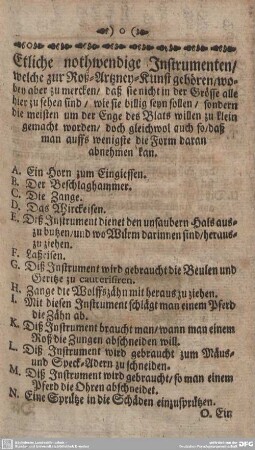 0
Etliche nothwendige Instrumenten/
welche zur Roß-Artzney-Kunst gehören/wo-
bey aber zu mercken/ daß sie nicht in der Grösse alle
hier zu sehen sind/ wie sie billig seyn sollen/ sondern
die meisten um der Enge des Blats willen zu klein
gemacht worden/ doch gleichwol auch so/daß
man auffs wenigste die Form daran
abnehmen kan.
A. Ein Horn zum Eingiessen.
B. Der Beschlaghammer.
C. Die Zange.
D. Das Wirckeisen.
E. Diß Instrument dienet den unsaubern Hals aus-
zu butzen/und wo Würm darinnen sind/heraus-
zu ziehen.
F. Laßeisen.
G. Diß Instrument wird gebraucht die Beulen und
zu cauterisiren.
H. Zange die Wolffszähn mit heraus zu ziehen.
I. Mit diesen Instrument schlägt man einem Pferd
die Zähn ab.
K. Diß Instrument braucht man/ wann man einem
Roß die Zungen abschneiden will.
L. Diß Instrument wird gebraucht zum Mäus-
und Speck-Adern zu schneiden.
M. Diß Instrument wird gebraucht/ so man einem
Pferd die Ohren abschneidet.
N. Eine Sprütze in die Schäden einzusprützen.
O. Ein